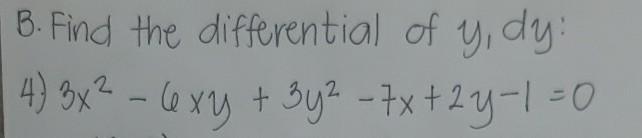 B. Find the differential of y, dy:
4) 3x² - 6xy + 3y² - 7x + 2y - 1 = 0